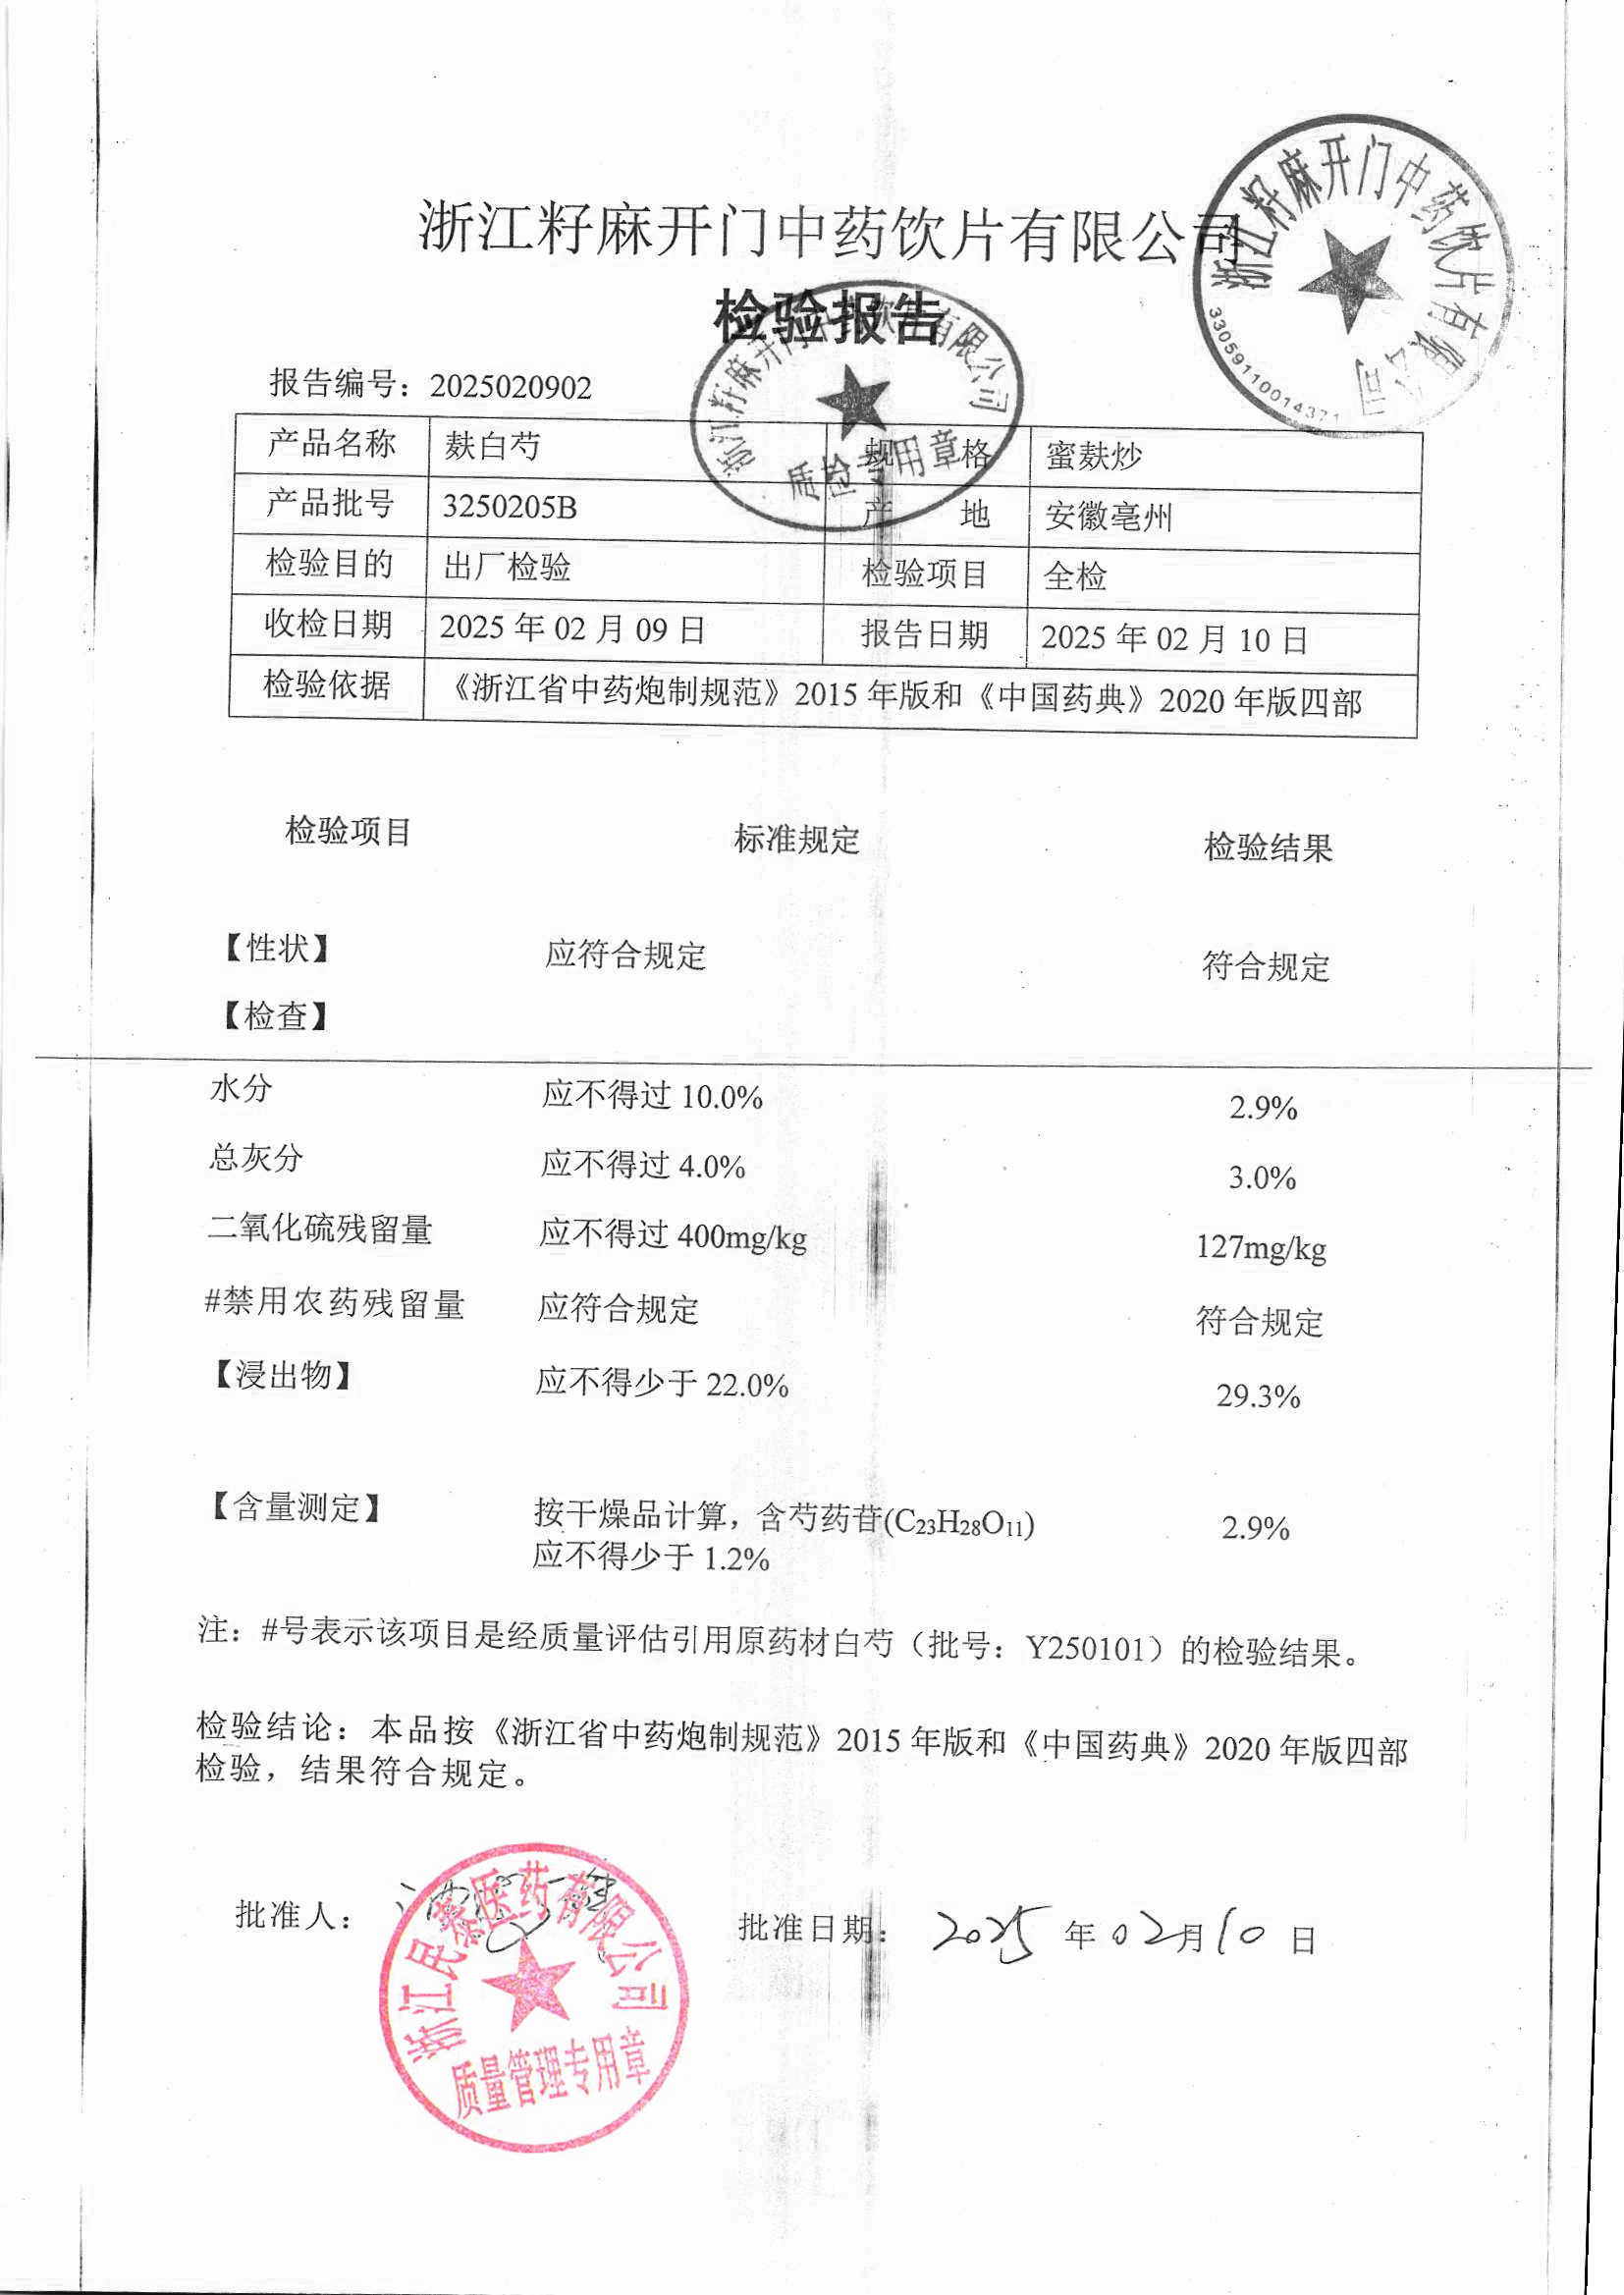 浙江籽麻开门中药饮片有限公司
检验报告
浙江籽麻开门中药饮片有限公司
330591110014371
浙江籽麻开门中药饮片有限公司
质检专用章
报告编号：2025020902
产品名称 麸白芍 规格 蜜麸炒
产品批号 3250205B 产地 安徽亳州
检验目的 出厂检验 检验项目 全检
收检日期 2025年02月09日 报告日期 2025年02月10日
检验依据 《浙江省中药炮制规范》2015年版和《中国药典》2020年版四部
检验项目 标准规定 检验结果
【性状】 应符合规定 符合规定
【检查】
水分 应不得过10.0% 2.9%
总灰分 应不得过4.0% 3.0%
二氧化硫残留量 应不得过400mg/kg 127mg/kg
#禁用农药残留量 应符合规定 符合规定
【浸出物】 应不得少于22.0% 29.3%
【含量测定】 按干燥品计算，含芍药苷(C23H28O11) 2.9%
应不得少于1.2%
注：#号表示该项目是经质量评估引用原药材白芍（批号：Y250101）的检验结果。
检验结论：本品按《浙江省中药炮制规范》2015年版和《中国药典》2020年版四部
检验，结果符合规定。
批准人： 批准日期：2025年02月10日
浙江民泰医药有限公司
质量管理专用章